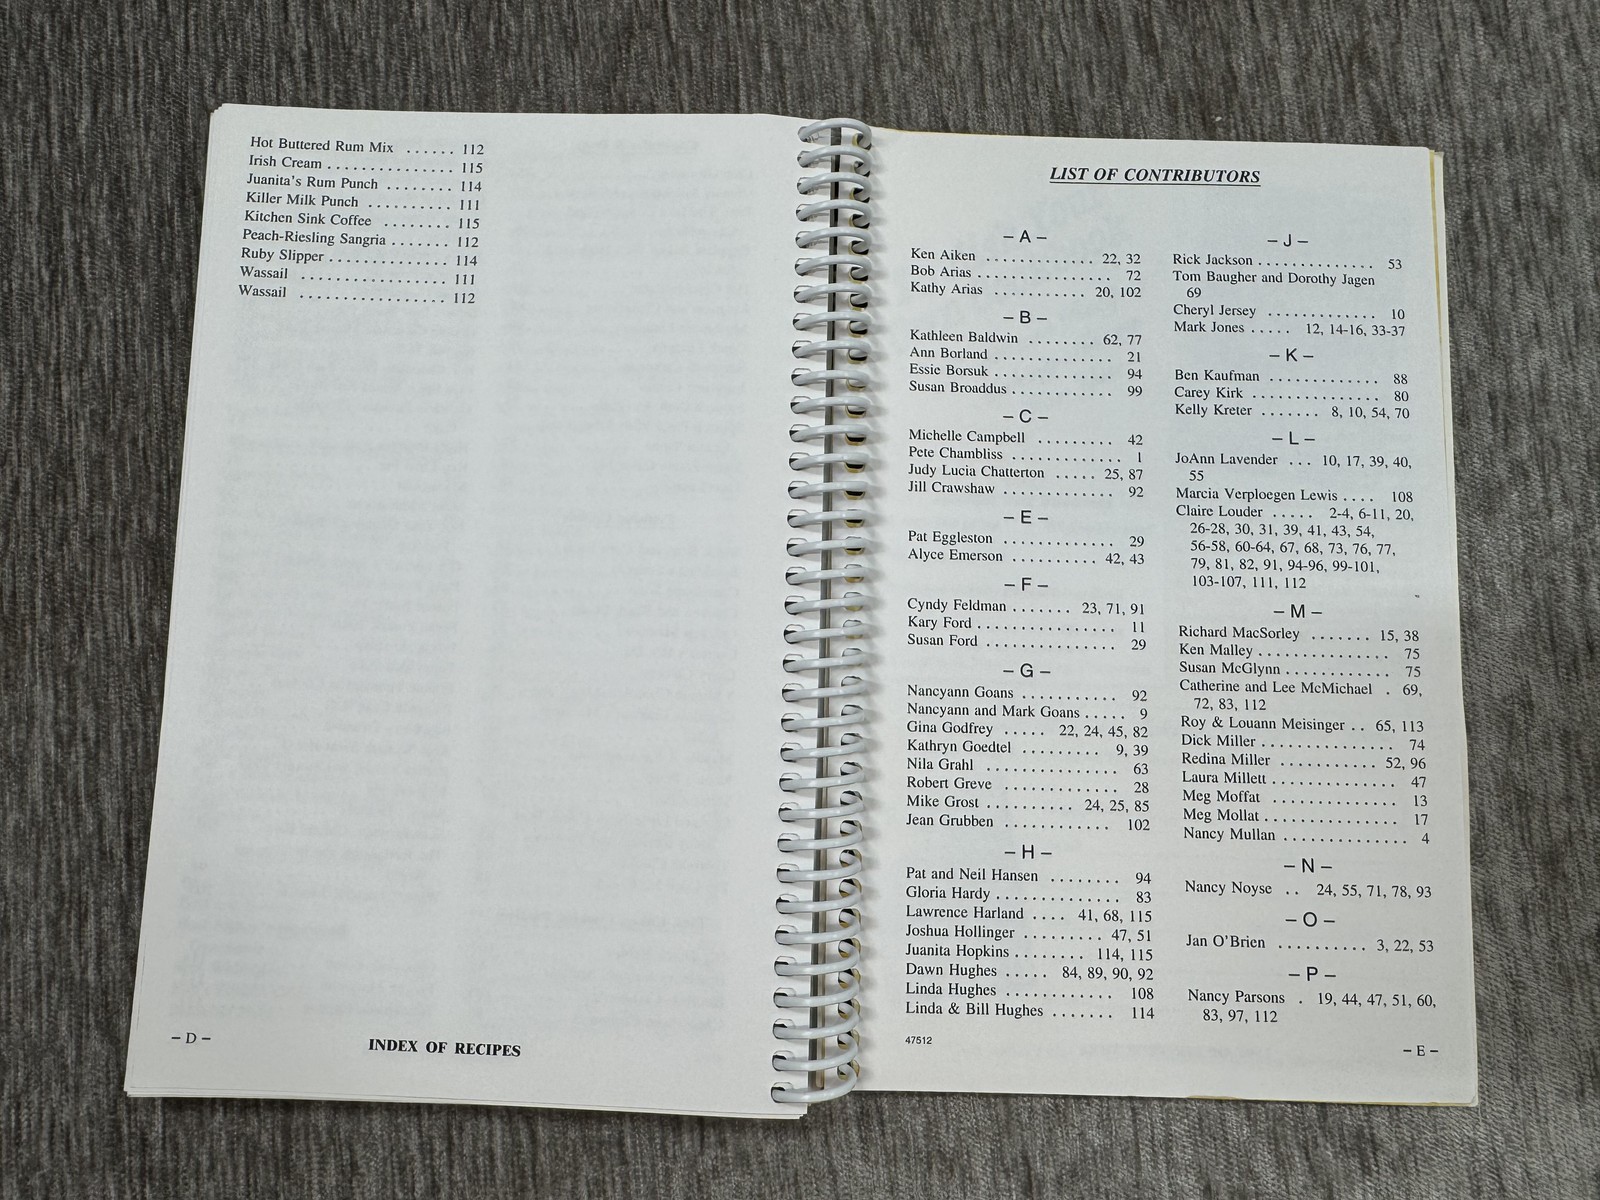 Hot Buttered Rum Mix ...... 112
Irish Cream .............. 115
Juanita's Rum Punch ........ 114
Killer Milk Punch .......... 111
Kitchen Sink Coffee ........ 115
Peach-Riesling Sangria ....... 112
Ruby Slipper ............. 114
Wassail ................ 111
Wassail ................ 112
– D –
INDEX OF RECIPES
LIST OF CONTRIBUTORS
– A –
Ken Aiken ............ 22, 32
Bob Arias ............... 72
Kathy Arias ........... 20, 102
– B –
Kathleen Baldwin ........ 62, 77
Ann Borland ............. 21
Essie Borsuk ............. 94
Susan Broaddus ........... 99
– C –
Michelle Campbell ......... 42
Pete Chambliss ............ 1
Judy Lucia Chatterton ..... 25, 87
Jill Crawshaw ............ 92
– E –
Pat Eggleston ............ 29
Alyce Emerson .......... 42, 43
– F –
Cyndy Feldman ....... 23, 71, 91
Kary Ford ............... 11
Susan Ford .............. 29
– G –
Nancyann Goans .......... 92
Nancyann and Mark Goans ..... 9
Gina Godfrey ..... 22, 24, 45, 82
Kathryn Goedtel ......... 9, 39
Nila Grahl .............. 63
Robert Greve ............ 28
Mike Grost .......... 24, 25, 85
Jean Grubben ........... 102
– H –
Pat and Neil Hansen ........ 94
Gloria Hardy ............. 83
Lawrence Harland .... 41, 68, 115
Joshua Hollinger ......... 47, 51
Juanita Hopkins ........ 114, 115
Dawn Hughes ..... 84, 89, 90, 92
Linda Hughes ............ 108
Linda & Bill Hughes ....... 114
47512
– J –
Rick Jackson ............. 53
Tom Baugher and Dorothy Jagen
69
Cheryl Jersey ............ 10
Mark Jones ..... 12, 14-16, 33-37
– K –
Ben Kaufman ............ 88
Carey Kirk .............. 80
Kelly Kreter ....... 8, 10, 54, 70
– L –
JoAnn Lavender ... 10, 17, 39, 40,
55
Marcia Verploegen Lewis .... 108
Claire Louder ..... 2-4, 6-11, 20,
26-28, 30, 31, 39, 41, 43, 54,
56-58, 60-64, 67, 68, 73, 76, 77,
79, 81, 82, 91, 94-96, 99-101,
103-107, 111, 112
– M –
Richard MacSorley ....... 15, 38
Ken Malley .............. 75
Susan McGlynn ........... 75
Catherine and Lee McMichael . 69,
72, 83, 112
Roy & Louann Meisinger .. 65, 113
Dick Miller .............. 74
Redina Miller ........... 52, 96
Laura Millett ............. 47
Meg Moffat ............. 13
Meg Mollat .............. 17
Nancy Mullan ............ 4
– N –
Nancy Noyse .. 24, 55, 71, 78, 93
– O –
Jan O'Brien .......... 3, 22, 53
– P –
Nancy Parsons . 19, 44, 47, 51, 60,
83, 97, 112
– E –